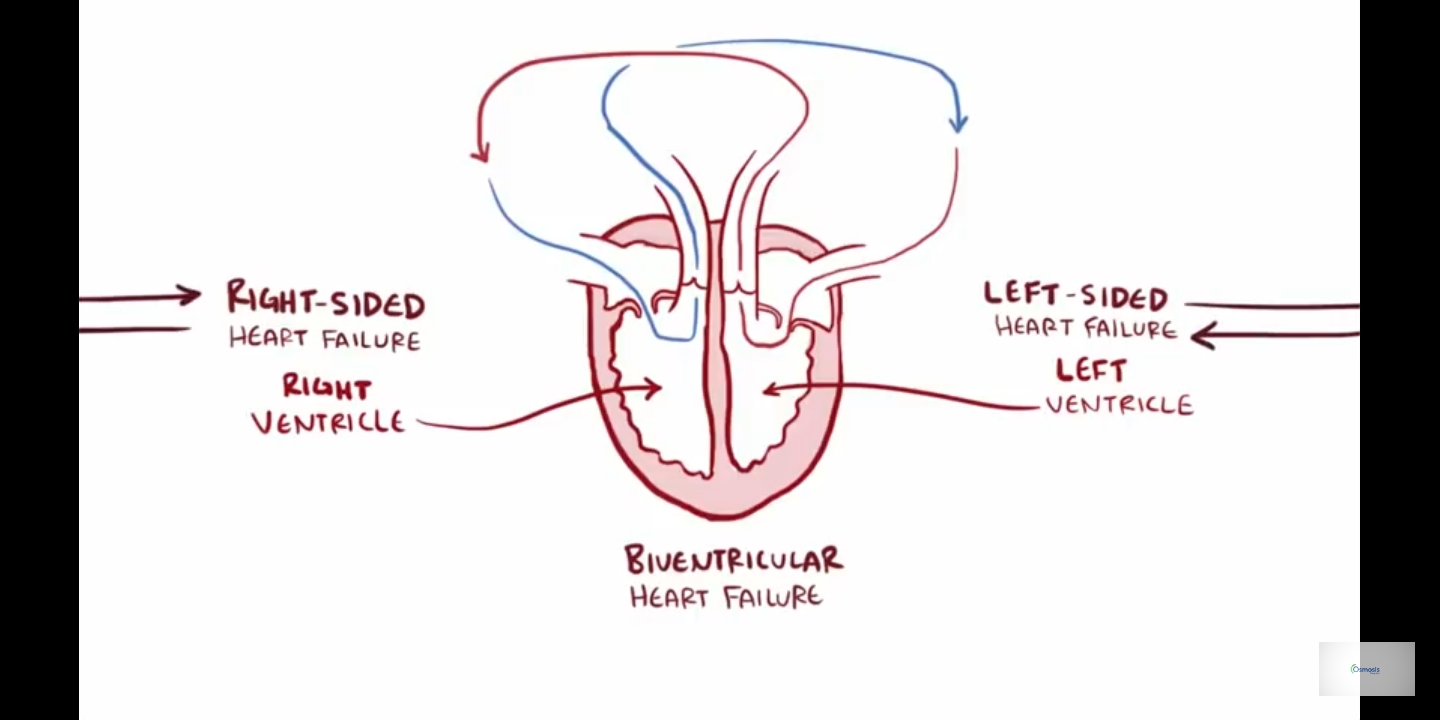 RIGHT-SIDED
HEART FAILURE
RIGHT
VENTRICLE
LEFT-SIDED
HEART FAILURE
LEFT
VENTRICLE
BIVENTRICULAR
HEART FAILURE
Osmosis